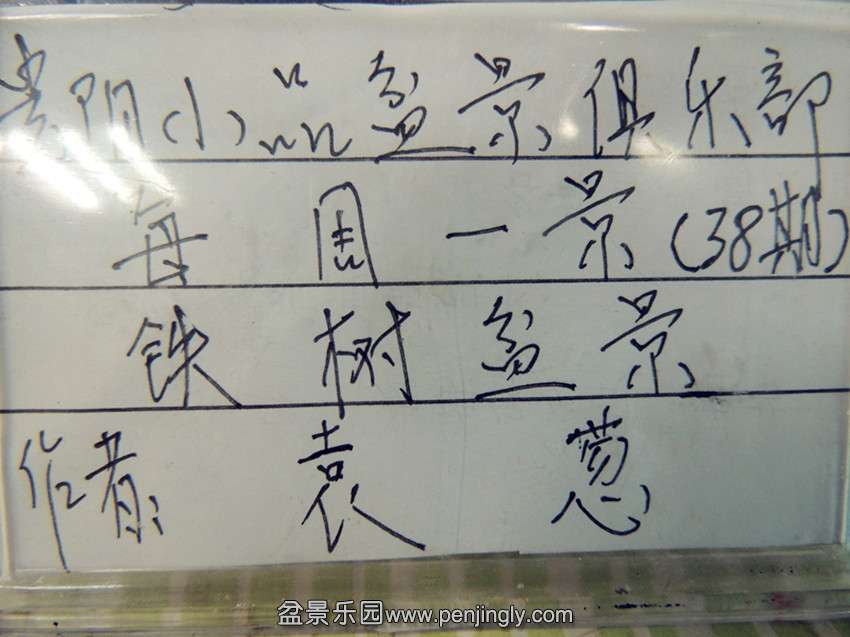 贵阳小品盆景俱乐部
每周一景(38期)
铁树盆景
作者: 袁葱
盆景乐园www.penjingly.com